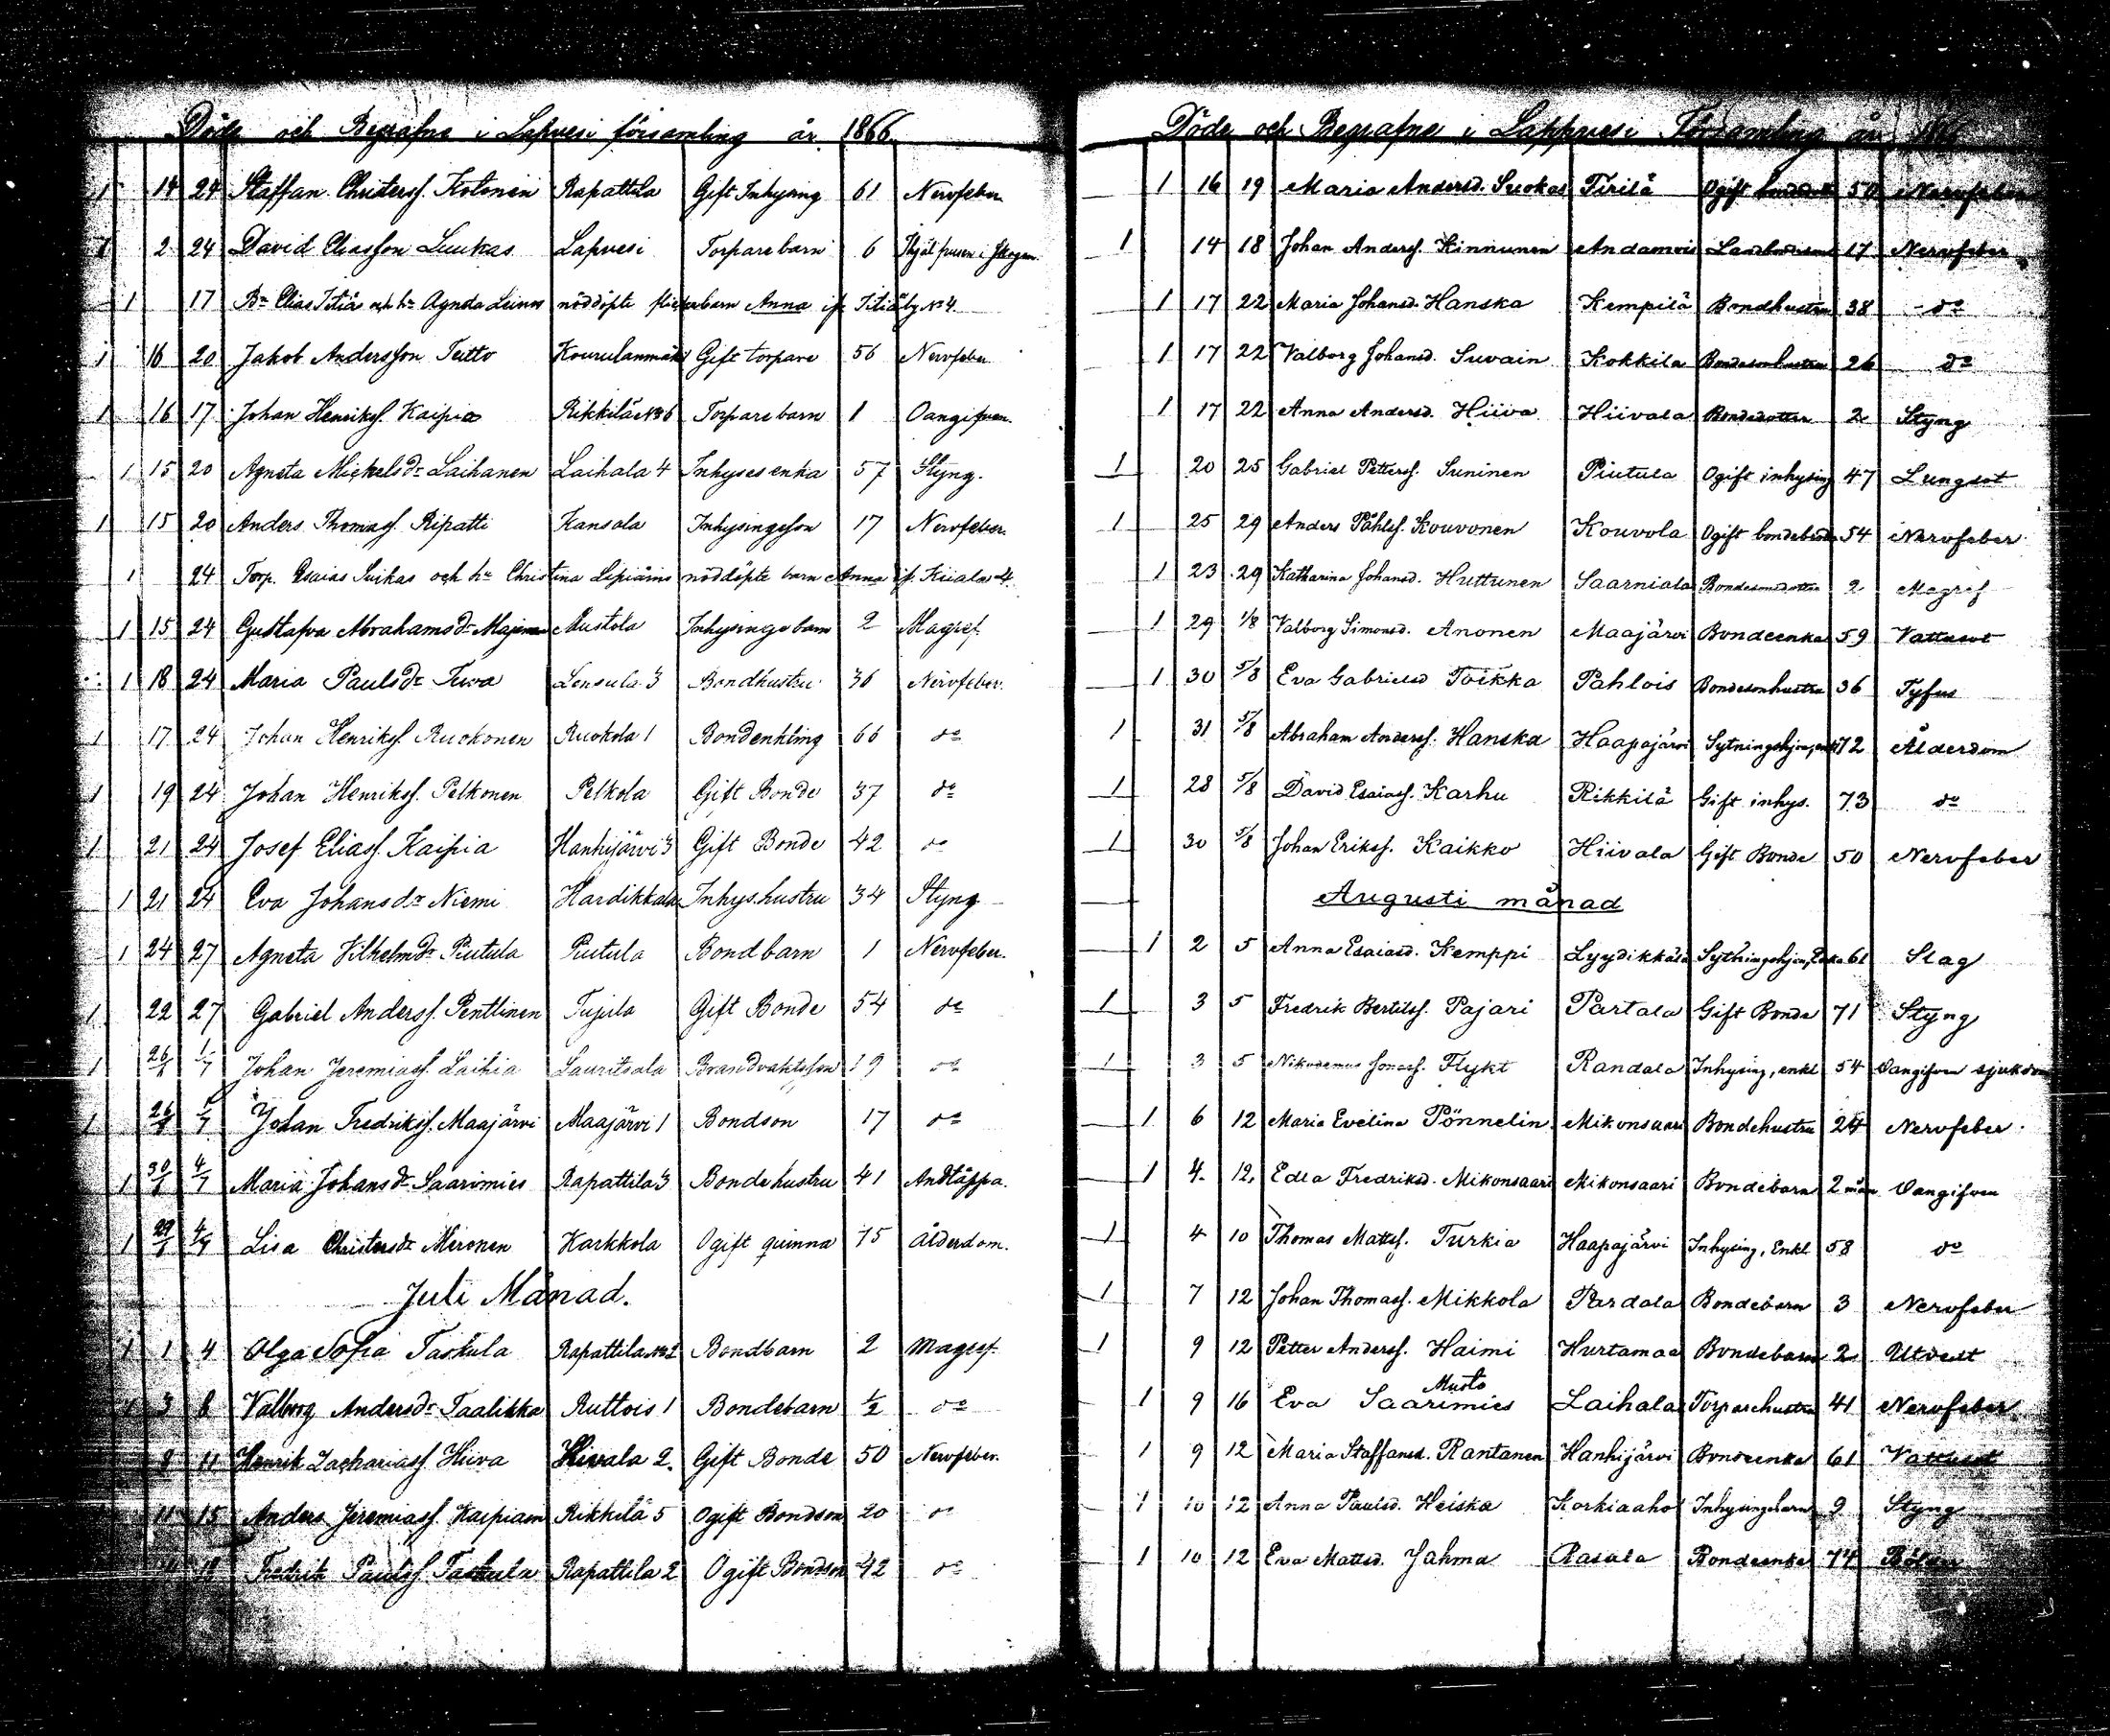 Döde och Begrafne i Lapvesi församling år 1866.
1 14 24 Staffan Christerss. Kotonen Rapattila Gift Inhysing 61 Nervfeber
1 2 24 David Eliasson Luukas Lapvesi Torparebarn 6 i Skogen.
1 17 Bn Elias Titiä och hn Agnda Leinos nöddöpte flickebarn Anna if. Titiä by No 4.
1 16 20 Jakob Andersson Teitto Kourulanmäki Gift torpare 56 Nervfeber
1 16 17 Johan Henrikss. Kaipia Rikkilä No 6 Torparebarn 1 Oangifven.
1 15 20 Agneta Mickelsdr Laihanen Laihala 4 Inhysesenka 57 Styng.
1 15 20 Anders Thomass. Ripatti Kansola Inhysingeson 17 Nervfeber.
1 24 Torp. Esaias Suikas och hn Christina nöddöpte barn Anna if. Kiiala 4.
1 15 24 Gustafva Abrahamsdr Mustola Inhysingebarn 2 Magref.
1 18 24 Maria Paulsdr Tuva Lensula 3 Bondhustru 36 Nervfeber.
1 17 24 Johan Henrikss. Ruokonen Ruokola 1 Bondenkling 66 do
1 19 24 Johan Henrikss. Pelkonen Pelkola Gift Bonde 37 do
1 21 24 Josef Eliass. Kaipia Hanhijärvi 3 Gift Bonde 42 do
1 21 24 Eva Johansdr Niemi Hardikkala Inhys.hustru 34 Styng
1 24 27 Agneta Vilhelmdr Piutula Piutula Bondbarn 1 Nervfeber.
1 22 27 Gabriel Anderss. Penttinen Tujula Gift Bonde 54 do
1 26/6 1/7 Johan Jeremiass. Laihia Lauritsala Brandvaktsson 19 do
1 26/6 1/7 Johan Fredrikss. Maajärvi Maajärvi 1 Bondson 17 do
1 30/6 4/7 Maria Johansdr Saarimies Rapattila 3 Bondehustru 41 Andtäppa.
1 29/6 4/7 Lisa Christersdr Mironen Karkkola Ogift quinna 75 Ålderdom.
Juli Månad.
1 1 4 Olga Sofia Taskula Rapattila No 2 Bondbarn 2 Magref.
1 3 8 Valborg Andersdr Taalikka Ruttois 1 Bondebarn 1/2 do
9 11 Henrik Zachariass. Hiiva Hiivala 2. Gift Bonde 50 Nervfeber.
11 15 Anders Jeremiass. Kaipiain Rikkilä 5 Ogift Bondson 20 do
18 Fredrik Paulss. Taskula Rapattila 2 Ogift Bondson 42 do
Döde och Begrafne i Lappvesi Församling år 1866
1 16 19 Maria Andersd. Suokas Tirilä Ogift 50 Nervfeber
1 14 18 Johan Anderss. Kinnunen Andamois 17 Nervfeber
1 17 22 Maria Johansd. Hanska Kempilä Bondhustru 38 do
1 17 22 Valborg Johansd. Suvain Kokkila Bondesonhustru 26 do
1 17 22 Anna Andersd. Hiiva Hiivala Bondedotter 2 Styng
1 20 25 Gabriel Petterss. Suninen Piutula Ogift inhysing 47 Lungsot
1 25 29 Anders Påhlss. Kouvonen Kouvola Ogift 54 Nervfeber
1 23 29 Katharina Johansd. Huttunen Saarniala Bondesonsdotter 2 Magref
1 29 1/8 Valborg Simonsd. Anonen Maajärvi Bondeenka 59 Vattusot
1 30 5/8 Eva Gabrielsd Toikka Pahlois Bondesonhustru 36 Tyfus
1 31 5/8 Abraham Anderss. Hanska Haapajärvi Sytningshjon, enkl 72 Ålderdom
1 28 5/8 David Esaiass. Karhu Rikkilä Gift inhys. 73 do
1 30 5/8 Johan Erikss. Kaikko Hiivala Gift Bonde 50 Nervfeber
Augusti månad
1 2 5 Anna Esaiasd. Kemppi Lyydikkälä Sytningshjon, Enka 61 Slag
1 3 5 Fredrik Bertilss. Pajari Partala Gift Bonde 71 Styng
1 3 5 Nikodemus Jonass. Flykt Randala Inhysing, enkl 54 Oangifven sjukdom
1 6 12 Maria Evelina Pönnelin Mikonsaari Bondehustru 24 Nervfeber
1 4 12 Edla Fredriksd. Mikonsaari Mikonsaari Bondebarn 2 mån Oangifven
1 4 10 Thomas Matss. Turkia Haapajärvi Inhysing, Enkl 58 do
1 7 12 Johan Thomass. Mikkola Pardala Bondebarn 3 Nervfeber
1 9 12 Petter Anderss. Haimi Hurtamaa Bondebarn 2 Utvext
Musto
1 9 16 Eva Saarimies Laihala Torparehustru 41 Nervfeber
1 9 12 Maria Staffansd. Rantanen Hanhijärvi Bondeenka 61 Vattusot
1 10 12 Anna Paulsd. Heiska Korkiaaho Inhysingebarn 9 Styng
1 10 12 Eva Mattsd. Jahma Rasala Bondeenka 74